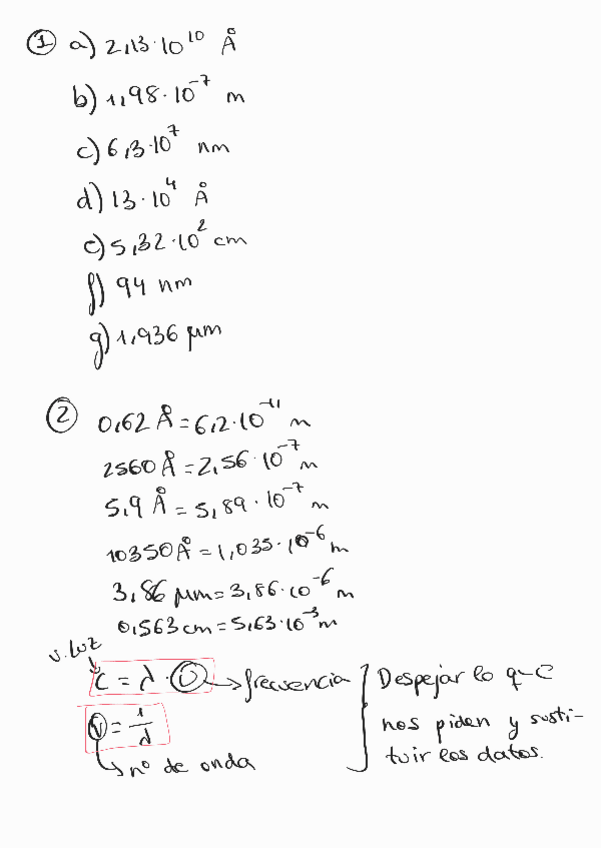 ① a) 2,13·10¹⁰ Å
b) 1,98·10⁻⁷ m
c) 6,3·10⁷ nm
d) 13·10⁴ Å
e) 5,32·10² cm
f) 94 nm
g) 1,936 μm
② 0,62 Å = 6,2·10⁻¹¹ m
2560 Å = 2,56·10⁻⁷ m
5,9 Å = 5,89·10⁻⁷ m
10350 Å = 1,035·10⁻⁶ m
3,86 μm = 3,86·10⁻⁶ m
0,563 cm = 5,63·10⁻³ m
v. luz
c = λ · ν → frecuencia
ν = 1/λ
nº de onda
Despejar lo que
nos piden y susti-
tuir los datos.